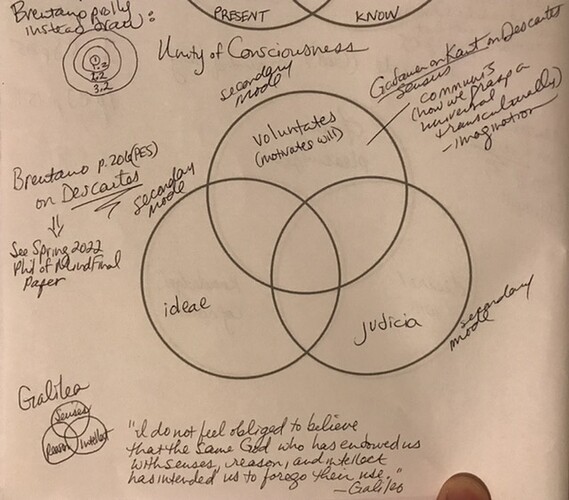 Brentano prolly
instead draw:
PRESENT
KNOW
1.
2
1,2
3,2
Unity of Consciousness
secondary
mode
Gadamer on Kant on Descartes
sensus
communis
(how we grasp a
universal
transculturally)
- imagination
voluntates
(motivates will)
Brentano p. 206 (PES)
on Descartes
secondary
mode
See Spring 2022
Phil of Mind Final
Paper
ideae
Judicia
secondary
mode
Galileo
Senses
Reason
Intellect
"I do not feel obliged to believe
that the same God who has endowed us
with senses, reason, and intellect
has intended us to forego their use."
- Galileo